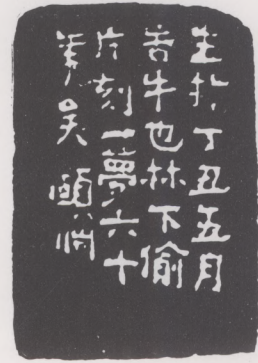 生扵丁丑五月
吾牛也林下偷
片刻一夢六十
年矣 頤淵